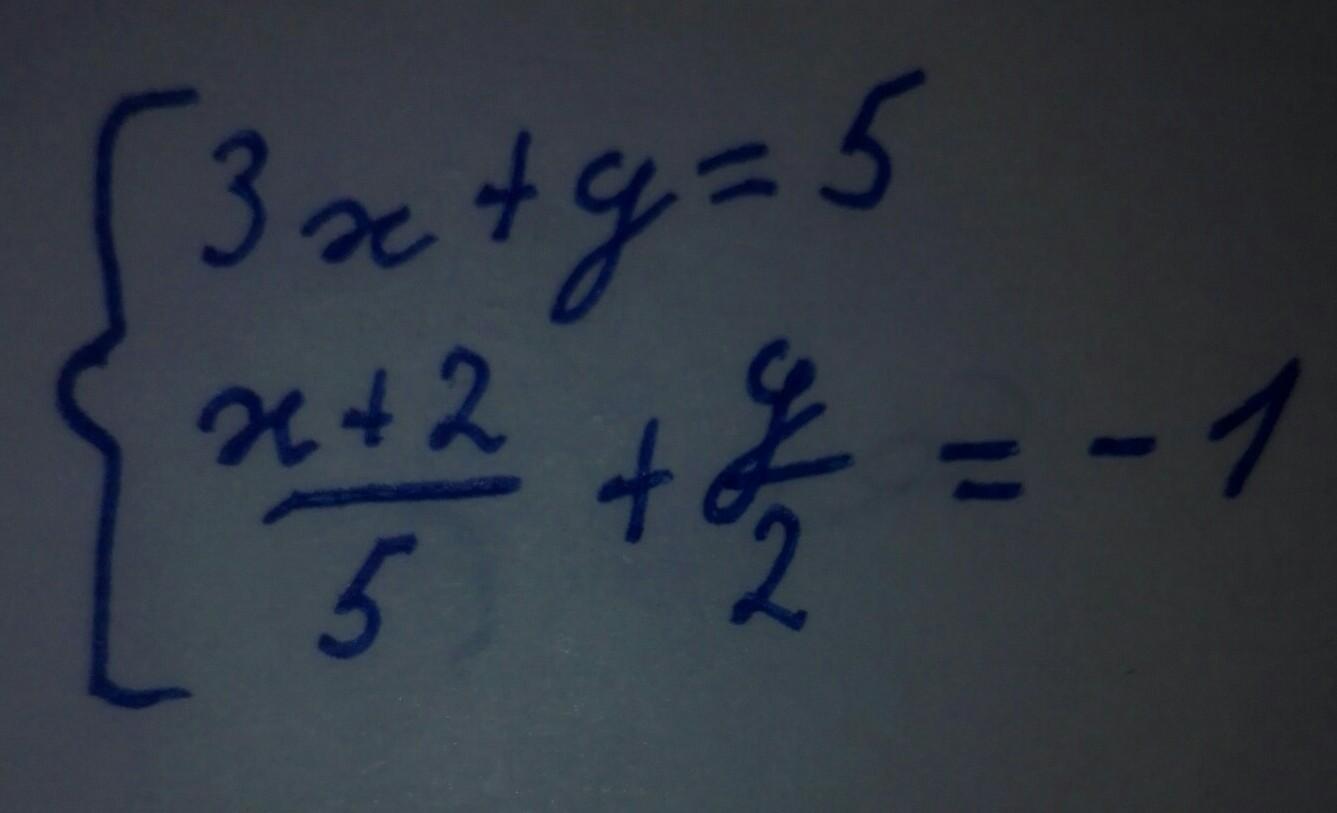 3x + y = 5
x + 2 / 5 + y / 2 = - 1